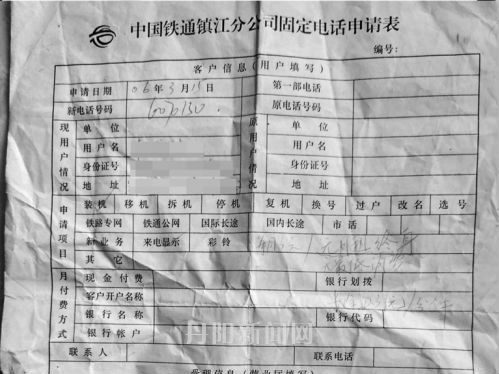 中国铁通镇江分公司固定电话申请表
编号:
客户信息(用户填写)
申请日期 06年3月15日 第一部电话
新电话号码 原电话号码
现用户情况 单位 原用户情况 单位
用户名 用户名
身份证号 身份证号
地址 地址
申请项目 装机 移机 拆机 停机 复机 换号 过户 改名 选号
铁路专网 铁通公网 国际长途 国内长途 市话
新业务 来电显示 彩铃
其它
月付费方式 现金付费 银行划拨
客户开户名称
银行名称 银行代码
银行帐户
联系人 联系电话
丹阳新闻网
受理信息(营业厅填写)